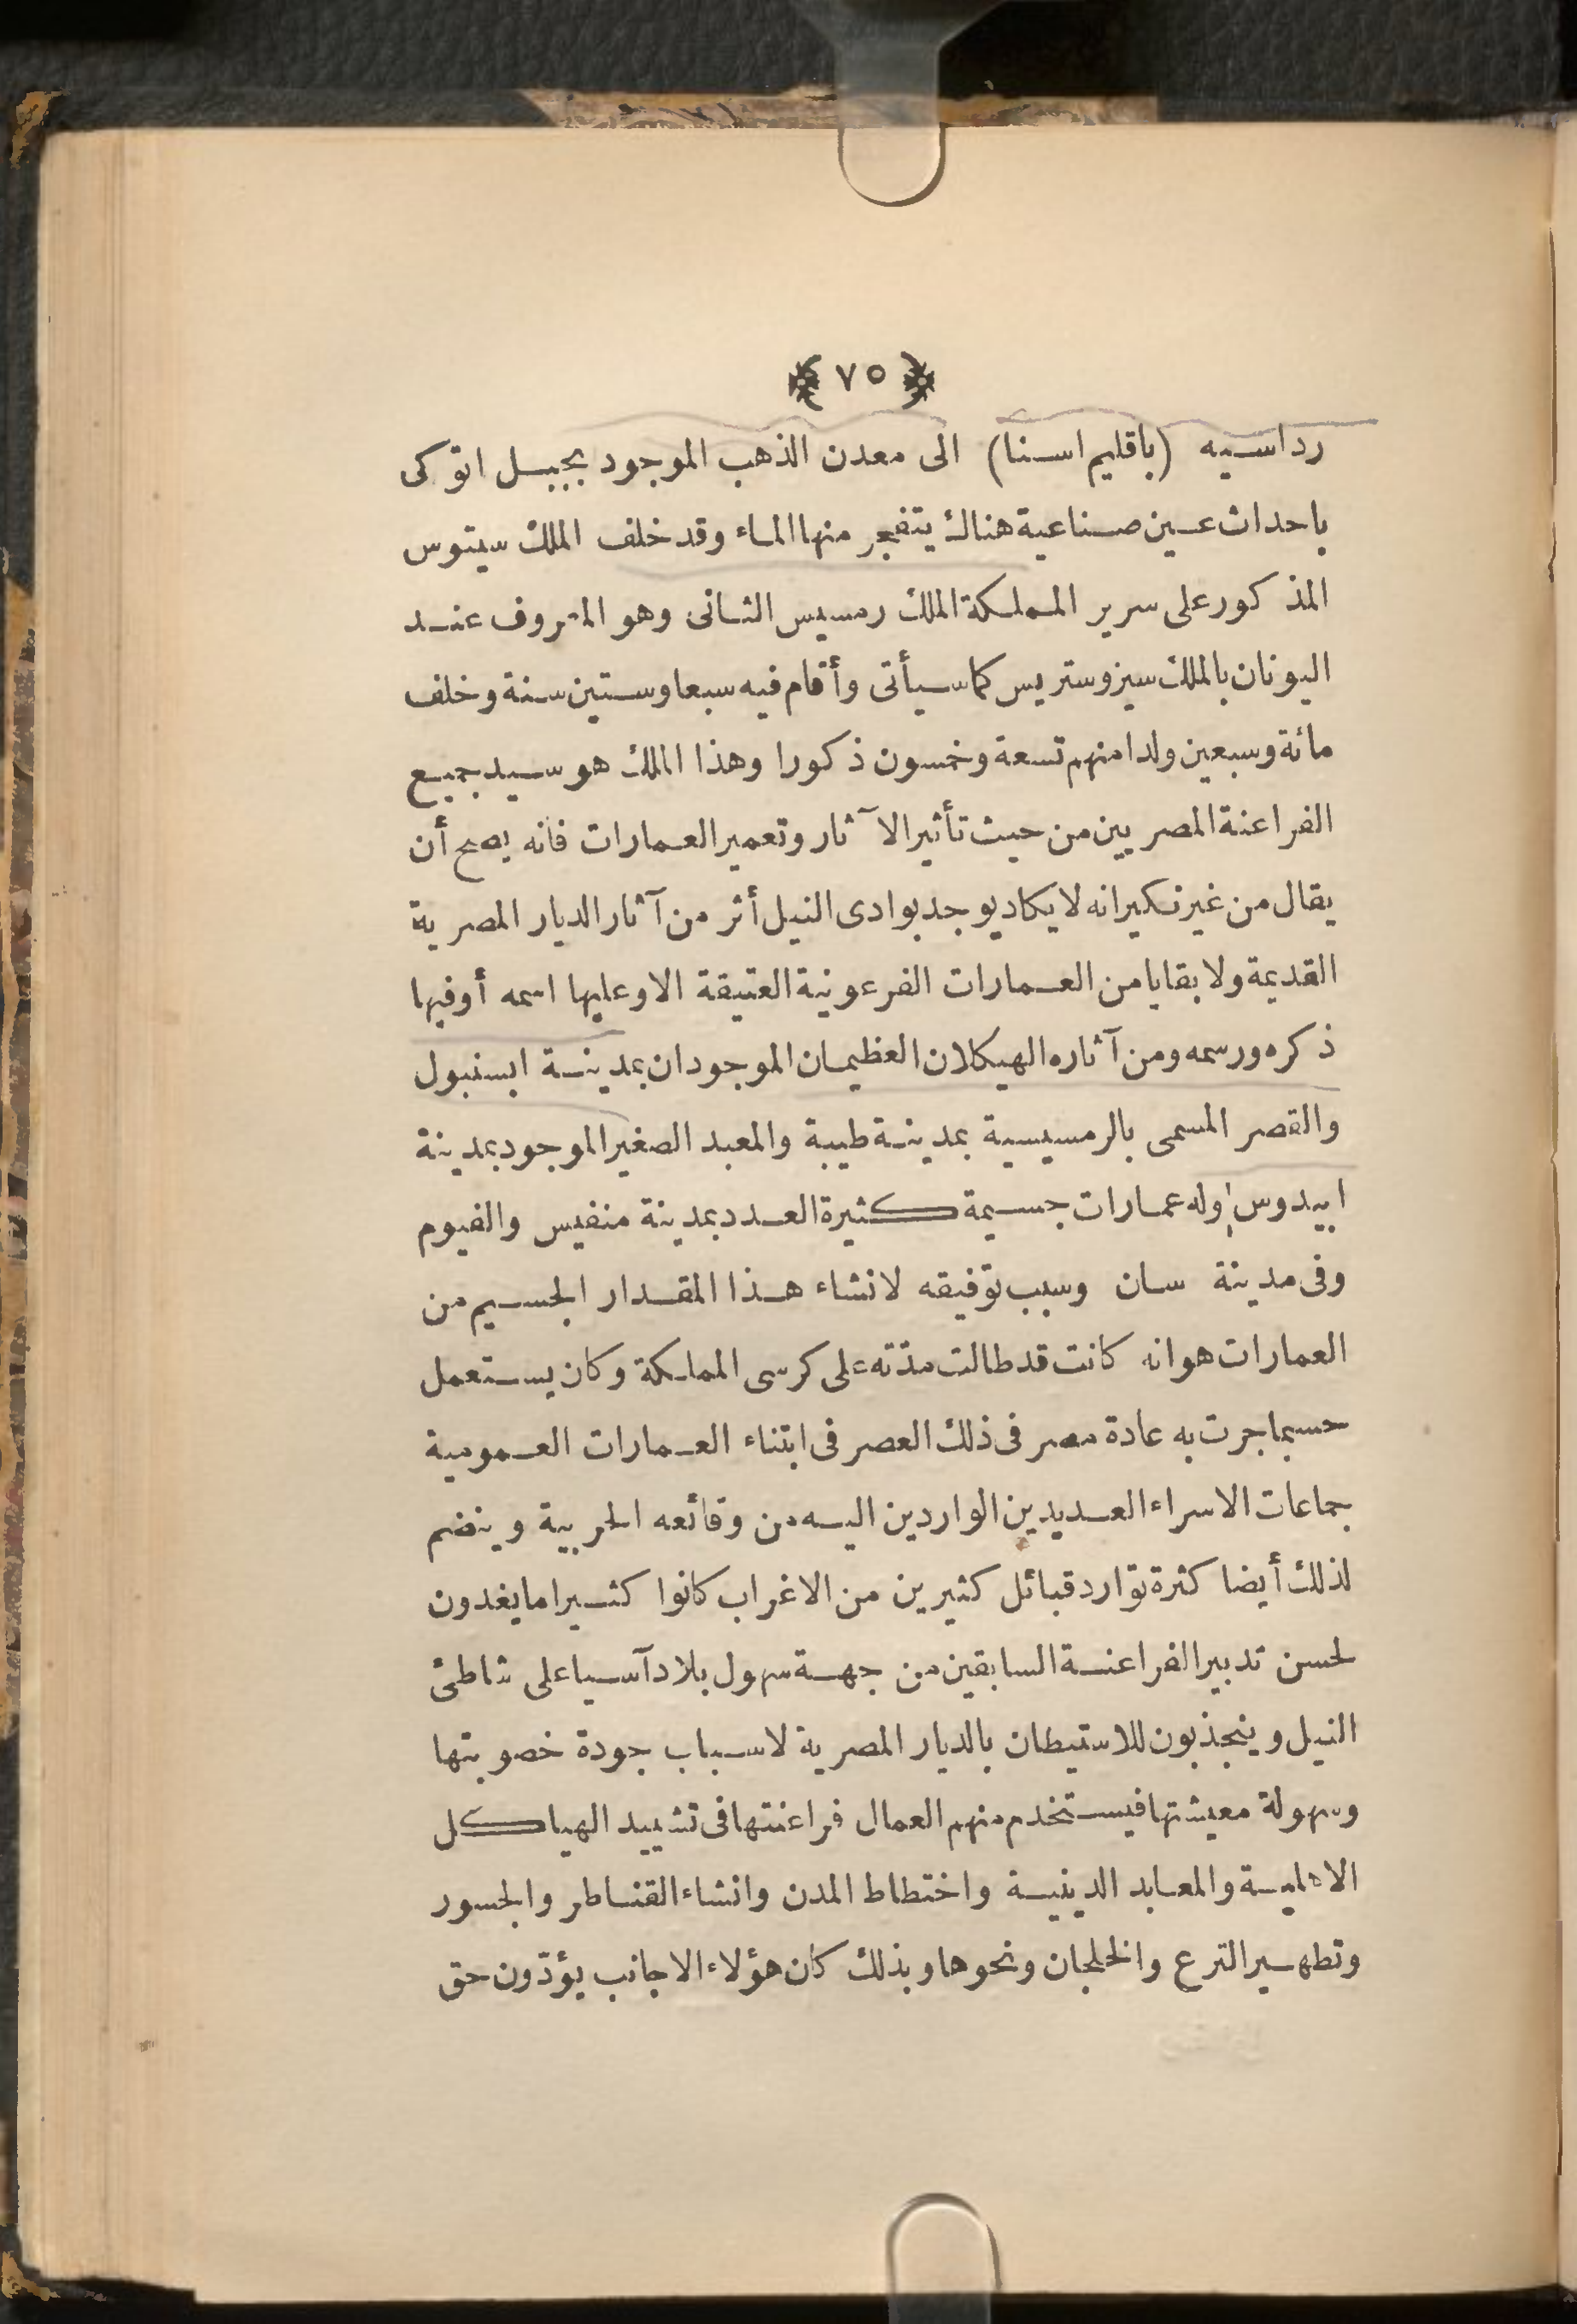 ﴿ ٧٥ ﴾
رداسيه (باقليم اسنا) الى معدن الذهب الموجود بجبل اتوكى
باحداث عين صناعية هناك يتفجر منها الماء وقد خلف الملك سيتوس
المذكور على سرير المملكة الملك رمسيس الثانى وهو المعروف عند
اليونان بالملك سيزوستريس كما سيأتى وأقام فيه سبعا وستين سنة وخلف
مائة وسبعين ولدا منهم تسعة وخمسون ذكورا وهذا الملك هو سيد جميع
الفراعنة المصريين من حيث تأثير الآثار وتعمير العمارات فانه يصح أن
يقال من غير نكير انه لا يكاد يوجد بوادى النيل أثر من آثار الديار المصرية
القديمة ولا بقايا من العمارات الفرعونية العتيقة الا وعليها اسمه أو فيها
ذكره ورسمه ومن آثاره الهيكلان العظيمان الموجودان بمدينة ابسنبول
والقصر المسمى بالرمسيسية بمدينة طيبة والمعبد الصغير الموجود بمدينة
ابيدوس وله عمارات جسيمة كثيرة العدد بمدينة منفيس والفيوم
وفى مدينة سان وسبب توفيقه لانشاء هذا المقدار الجسيم من
العمارات هو انه كانت قد طالت مدّته على كرسى المملكة وكان يستعمل
حسبما جرت به عادة مصر فى ذلك العصر فى ابتناء العمارات العمومية
جماعات الاسراء العديدين الواردين اليه من وقائعه الحربية وينضم
لذلك أيضا كثرة توارد قبائل كثيرين من الاغراب كانوا كثيرا ما يغدون
لحسن تدبير الفراعنة السابقين من جهة سهول بلاد آسيا على شاطئ
النيل وينجذبون للاستيطان بالديار المصرية لاسباب جودة خصوبتها
وسهولة معيشتها فيستخدم منهم العمال فراعنتها فى تشييد الهياكل
الاهلية والمعابد الدينية واختطاط المدن وانشاء القناطر والجسور
وتطهير الترع والخلجان ونحوها وبذلك كان هؤلاء الاجانب يؤدّون حق